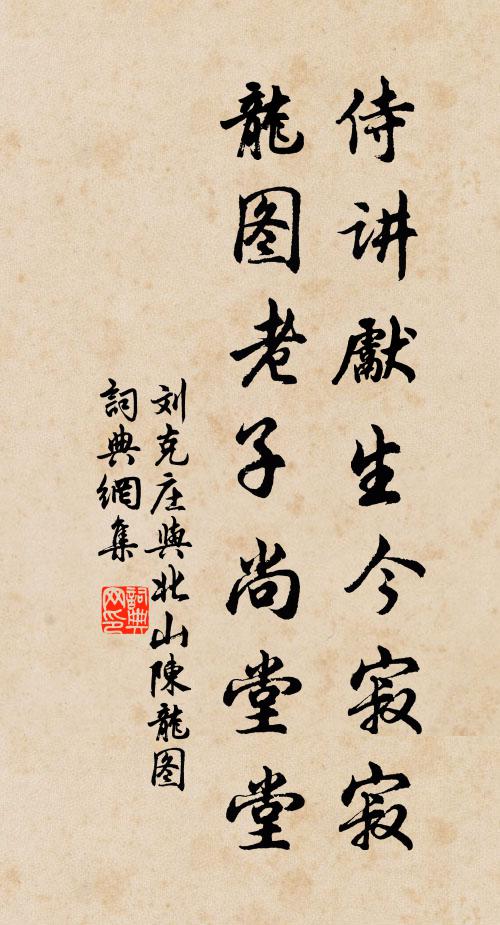 侍讲獻生今寂寂
龍图老子尚堂堂
刘克庄與北山陳龍图
詞典網集
詞典
网印